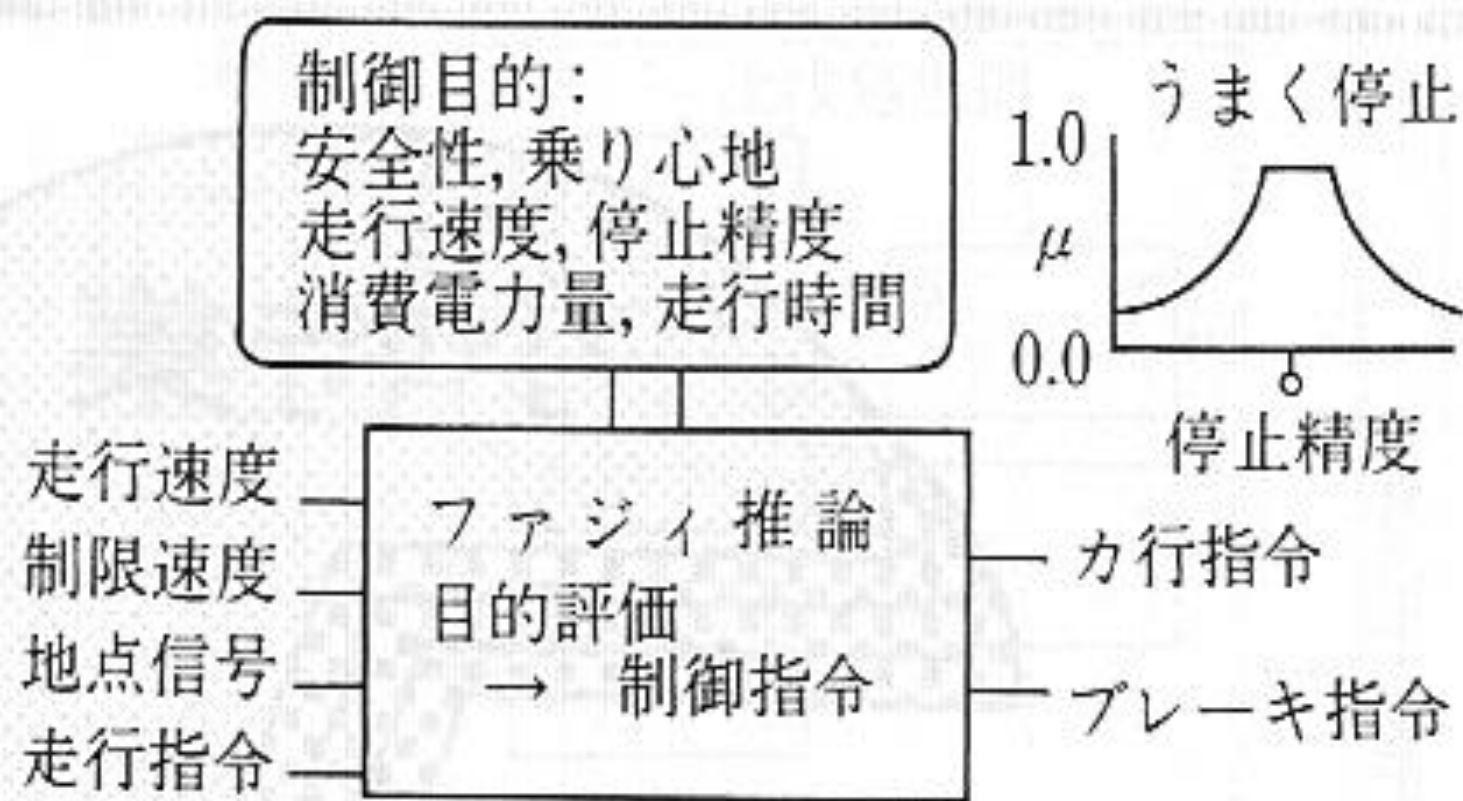 制御目的:
安全性, 乗り心地
走行速度, 停止精度
消費電力量, 走行時間
うまく停止
1.0
μ
0.0
停止精度
走行速度
制限速度
地点信号
走行指令
ファジィ推論
目的評価
→ 制御指令
カ行指令
ブレーキ指令